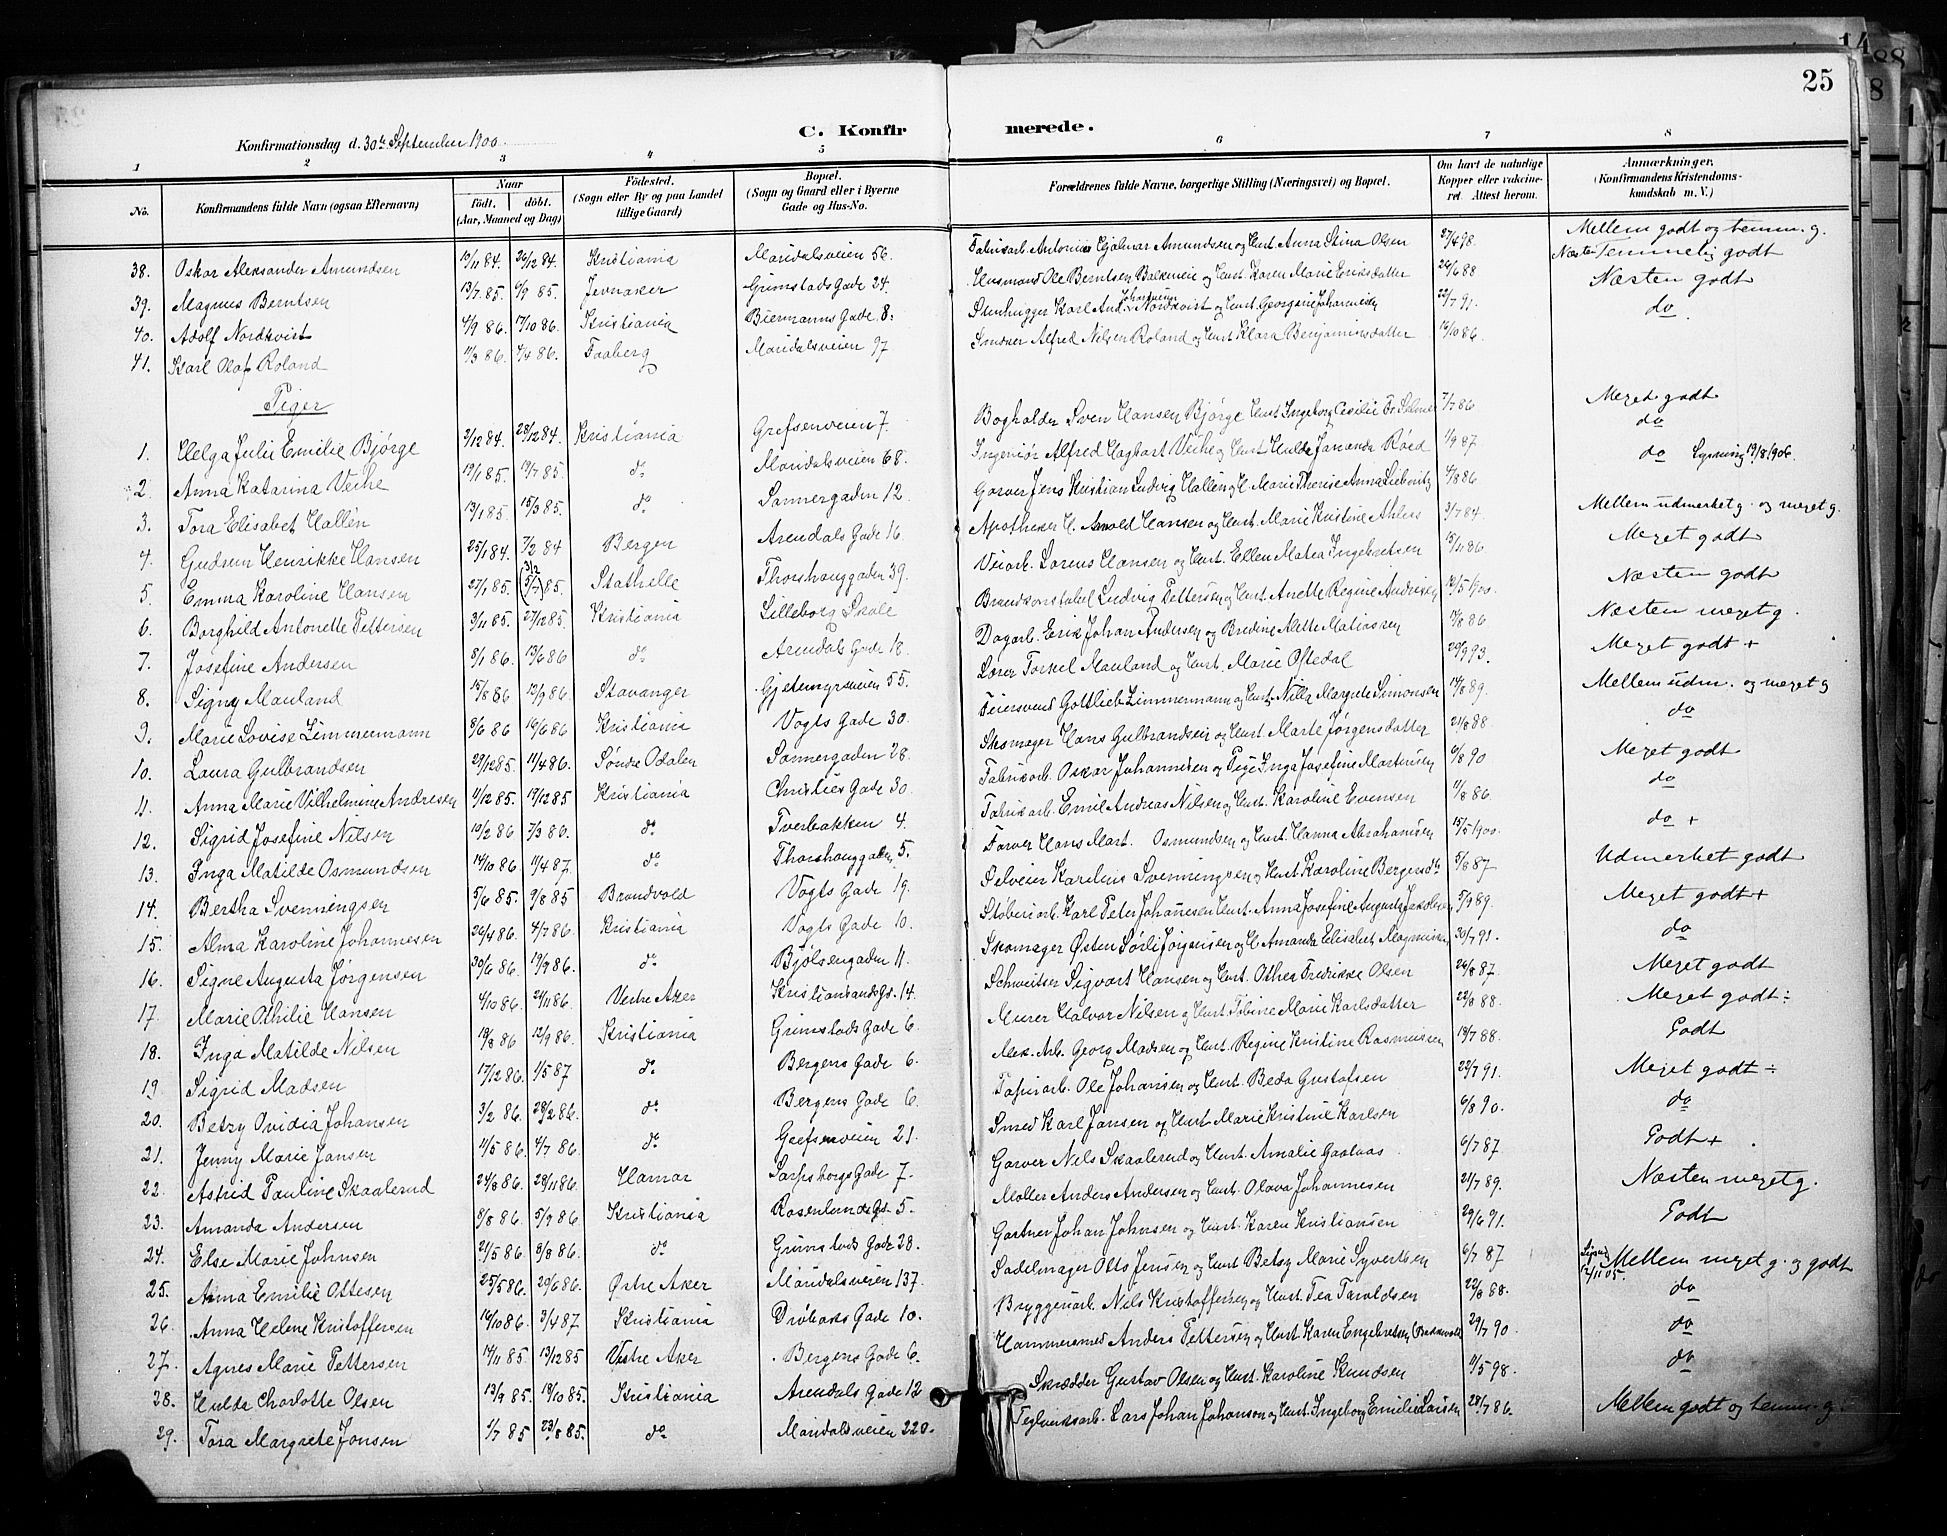 25
C. Konfirmerede.
Konfirmationsdag d. 30te September 1900
1 2 3 4 5 6 7 8
No. Konfirmandens fulde Navn (ogsaa Efternavn) Naar født. døbt. (Aar, Maaned og Dag) Fødested. (Sogn eller By og paa Landet tillige Gaard) Bopæl. (Sogn og Gaard eller i Byerne Gade og Hus-No. Forældrenes fulde Navne, borgerlige Stilling (Næringsvei) og Bopæl. Om havt de naturlige Kopper eller vakcineret Attest herom. Anmærkninger, (Konfirmandens Kristendomskundskab m. V.)
38. Oskar Aleksander Amundsen 10/11 84. 26/12 84. Kristiania Maridalsveien 56. Fabrikarb. Antonius Hjalmar Amundsen og Hust. Anna Stina Olsen 27/4 98. Mellem godt og temm. g.
39. Magnus Berntsen 13/7 85. 6/9 85. Jevnaker Grimstads Gade 24. Husmand Ole Berntsen Bakmeie og Hust. Karen Marie Eriksdatter 24/6 88 Næsten Temmelig godt
40. Adolf Nordkvist 4/9 86. 17/10 86. Kristiania Biermanns Gade 8. Stenhugger Karl And. Johansen Nordkvist og Hust. Georgine Johannesen 22/7 91. Næsten godt
41. Karl Olaf Roland 11/3 86. 4/4 86. Faaberg Maridalsveien 97 Smører Alfred Nilsen Roland og Hust. Klara Benjaminsdatter 16/10 86. do
Piger
1. Helga Julie Emilie Bjørge 2/12 84. 28/12 84. Kristiania Grefsenveien 7. Bogholder Sven Hansen Bjørge Hust. Ingeborg Cecilie Fr. Selmer 7/7 86 Meget godt
2. Anna Katarina Veihe 19/1 85. 19/7 85. do Maridalsveien 68. Ingeniør Alfred Hagbart Veihe og Hust. Hulda Jananda Røed 1/9 87 do
3. Tora Elisabet Hallén 13/1 85. 15/3 85. do Sannergaden 12. Garver Jens Kristian Ludvig Hallén og H. Marie Therese Anna Liebwitz 4/8 86 do Lysning 17/8 1906.
4. Gudrun Henrikke Hansen 25/1 84. 7/2 84 Bergen Arendals Gade 16. Apotheker H. Arnold Hansen og Hust. Marie Kristine Ahlers 3/7 84. Mellem udmerket g. og meget g.
5. Emma Karoline Hansen 27/1 85. (5/7) 85. 3/2 Stathelle Thorshauggaden 39. Veiarb. Lorens Hansen og Hust. Ellen Matea Ingebretsen 15/11 86. Meget godt
6. Borghild Antonette Pettersen 3/11 85. 27/12 85. Kristiania Lilleborg Skole Brandkonstabel Ludvig Pettersen og Hust. Anette Regine Andersen 12/5 1900. Næsten godt
7. Josefine Andersen 8/1 86. 13/6 86 do Arendals Gade 18. Dagarb. Erik Johan Andersen og Bredine Alette Matiassen 17/8 86. Næsten meget g.
8. Signy Mauland 15/8 86 12/9 86. Stavanger Gjetemyrsveien 55. Lærer Torkel Mauland og Hust. Marie Oftedal 20/9 93. Meget godt +
9. Marie Lovise Zimmermann 8/6 86 16/6 86 Kristiania Vogts Gade 30. Feiersvend Gottlieb Zimmermann og Hust. Nilla Margrete Simonsen 14/8 89. Mellem udm. og meget g
10. Laura Gulbrandsen 29/12 85. 11/4 86. Søndre Odalen Sannergaden 28. Skomager Hans Gulbrandsen og Hust. Marte Jørgensdatter 21/8 88 do
11. Anna Marie Vilhelmine Andresen 11/12 85. 19/12 85 Kristiania Christies Gade 30. Fabrikarb. Oskar Johannesen og Pige Inga Josefine Martinsen 6/8 90 Meget godt
12. Sigrid Josefine Nilsen 10/2 86 7/3 86. do Tverbakken 4. Fabrikarb. Emil Andreas Nilsen og Hust. Karoline Evensen 11/8 86. do
13. Inga Matilde Osmundsen 14/10 86 11/4 87. do Thorshauggaden 5. Farver Hans Mart. Osmundsen og Hust. Hanna Abrahamsen 15/5 1900. do +
14. Bertha Svenningsen 5/6 85. 9/8 85 Brandvold Vogts Gade 19 Selveier Karelius Svenningsen og Hust. Karoline Bergersdtr 5/8 87 Udmerket godt
15. Alma Karoline Johannesen 26/4 86. 4/7 86. Kristiania Vogts Gade 10. Støberiarb. Karl Peter Johannesen Hust. Anna Josefine Augusta Jakobsen 5/9 89. Meget godt +
16. Signe Augusta Jørgensen 30/6 86. 19/9 86. do Bjølsengaden 11. Skomager Østen Sørli Jørgensen og H. Amanda Elisabet Magnussen 30/7 91. do
17. Marie Othilie Hansen 4/10 86. 21/11 86. Vestre Aker Kristiansands Gt. 14 Schweitser Sigvart Hansen og Hust. Othea Fredrikke Olsen 24/8 87. Meget godt
18. Inga Matilde Nilsen 19/8 86 12/9 86. Kristiania Grimstads Gade 6 Murer Halvor Nilsen og Hust. Tobine Marie Karlsdatter 22/8 88. Meget godt ÷
19 Sigrid Madsen 17/12 86. 1/5 87 do Bergens Gade 6. Mek. Arb. Georg Madsen og Hust. Regine Kristine Rasmussen 13/7 88. Godt
20. Betzy Ovidia Johansen 3/2 86. 28/2 86. do Bergens Gade 6. Papirarb. Ole Johansen og Hust. Beda Gustafsen 22/7 91. Meget godt ÷
21. Jenny Marie Jansen 11/5 86 4/7 86. do Grefsenveien 21. Smed Karl Jansen og Hust. Marie Kristine Karlsen 6/8 90. do
22. Astrid Pauline Skaalerud 24/8 86. 28/11 86. Hamar Sarpsborgs Gade 7. Garver Nils Skaalerud og Hust. Amalie Gaalaas 6/7 87. Godt +
23. Amanda Andersen 8/8 86. 5/9 86 Kristiania Rosenlunds Gt. 5. Møller Anders Andersen og Hust. Olava Johannesen 21/7 89. Næsten meget g.
24. Else Marie Johnsen 21/5 86 8/8 86. do Grimstads Gade 28. Gartner Johan Johnsen og Hust. Karen Kristiansen 29/6 91. Godt
25. Anna Emilie Ottesen 25/5 86. 20/6 86. Østre Aker Maridalsveien 137. Sadelmager Otto Jensen og Hust. Betsy Marie Syvertsen 6/7 87 Lysning 12/11 05. Mellem meget g. og godt
26. Anna Helene Kristoffersen 16/10 86. 3/4 87 Kristiania Drøbaks Gade 10. Bryggeriarb. Nils Kristoffersen og Hust. Tea Taroldsen 22/8 88. do
27. Agnes Marie Pettersen 14/11 85. 13/12 85 Vestre Aker Bergens Gade 6. Hammersmed Anders Pettersen og Hust. Karen Engebretsen 29/7 90. do
28. Hulda Charlotte Olsen 13/9 85. 18/10 85. Kristiania Arendals Gade 12 Skrædder Gustav Olsen og Hust. Karoline Knudsen 11/5 98. do
29. Tora Margrete Jonsen 1/7 85 23/8 85. do Maridalsveien 220. Teglverksarb. Lars Johan Johanson og Hust. Ingeborg Emilie Larsen 28/7 86. Mellem godt og temm. g.